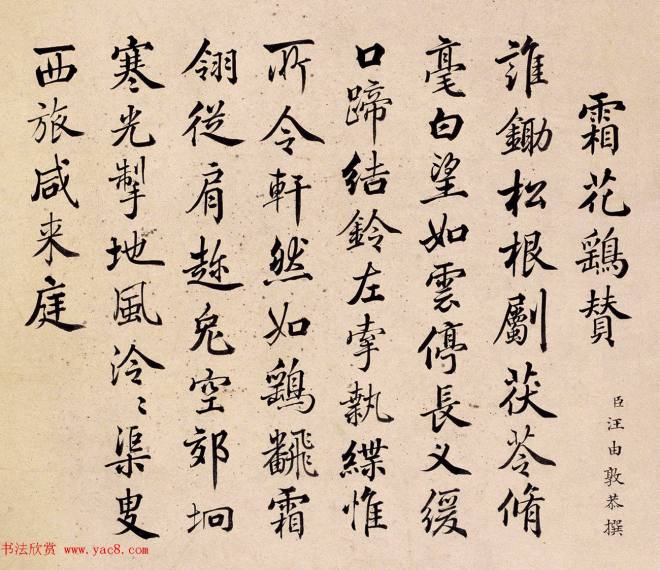 霜花鷂賛
臣汪由敦恭撰
誰鋤松根劚茯苓脩
毫白望如雲停長叉緩
口蹄結鈴左牽執緤惟
所令軒然如鷂飜霜
翎從肩趂兔空郊坰
寒光掣地風泠〻渠叟
西旅咸来庭
书法欣赏 www.yac8.com